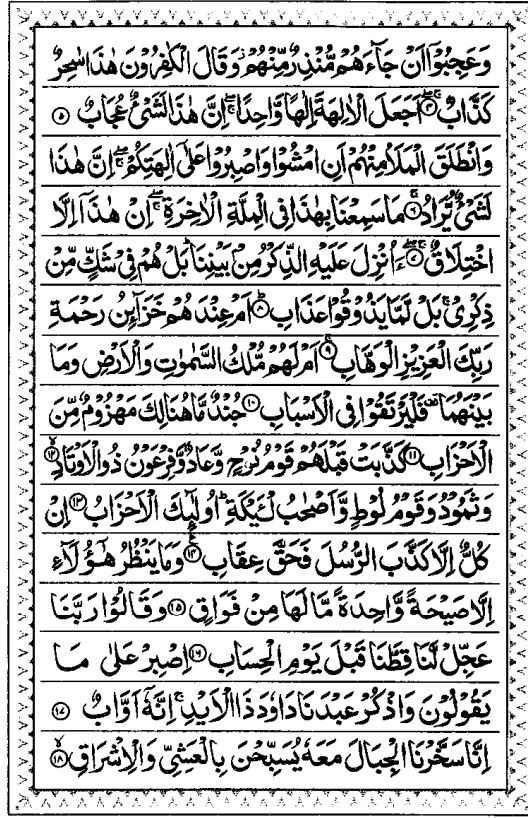 وَعَجِبُوْۤا اَنْ جَآءَهُمْ مُّنْذِرٌ مِّنْهُمْ ؗ وَقَالَ الْكٰفِرُوْنَ هٰذَا سٰحِرٌ
كَذَّابٌ ۖۚ ﴿۴﴾ اَجَعَلَ الْاٰلِهَةَ اِلٰهًا وَّاحِدًا ۖۚ اِنَّ هٰذَا لَشَیْءٌ عُجَابٌ ﴿۵﴾
وَانْطَلَقَ الْمَلَاُ مِنْهُمْ اَنِ امْشُوْا وَاصْبِرُوْا عَلٰۤی اٰلِهَتِكُمْ ۖۚ اِنَّ هٰذَا
لَشَیْءٌ یُّرَادُ ۖۚ ﴿۶﴾ مَا سَمِعْنَا بِهٰذَا فِی الْمِلَّةِ الْاٰخِرَةِ ۖۚ اِنْ هٰذَاۤ اِلَّا
اخْتِلَاقٌ ۖۚ ﴿۷﴾ ءَاُنْزِلَ عَلَیْهِ الذِّكْرُ مِنْۢ بَیْنِنَا ؕ بَلْ هُمْ فِیْ شَكٍّ مِّنْ
ذِكْرِیْ ۚ بَلْ لَّمَّا یَذُوْقُوْا عَذَابِ ؕ ﴿۸﴾ اَمْ عِنْدَهُمْ خَزَآىِٕنُ رَحْمَةِ
رَبِّكَ الْعَزِیْزِ الْوَهَّابِ ۚ ﴿۹﴾ اَمْ لَهُمْ مُّلْكُ السَّمٰوٰتِ وَالْاَرْضِ وَمَا
بَیْنَهُمَا ۫ فَلْیَرْتَقُوْا فِی الْاَسْبَابِ ﴿۱۰﴾ جُنْدٌ مَّا هُنَالِكَ مَهْزُوْمٌ مِّنَ
الْاَحْزَابِ ﴿۱۱﴾ كَذَّبَتْ قَبْلَهُمْ قَوْمُ نُوْحٍ وَّعَادٌ وَّفِرْعَوْنُ ذُو الْاَوْتَادِ ۙ ﴿۱۲﴾
وَثَمُوْدُ وَقَوْمُ لُوْطٍ وَّاَصْحٰبُ لْـَٔیْكَةِ ؕ اُولٰٓىِٕكَ الْاَحْزَابُ ﴿۱۳﴾ اِنْ
كُلٌّ اِلَّا كَذَّبَ الرُّسُلَ فَحَقَّ عِقَابِ ﴿۱۴﴾ وَمَا یَنْظُرُ هٰۤؤُلَآءِ
اِلَّا صَیْحَةً وَّاحِدَةً مَّا لَهَا مِنْ فَوَاقٍ ﴿۱۵﴾ وَقَالُوْا رَبَّنَا
عَجِّلْ لَّنَا قِطَّنَا قَبْلَ یَوْمِ الْحِسَابِ ﴿۱۶﴾ اِصْبِرْ عَلٰی مَا
یَقُوْلُوْنَ وَاذْكُرْ عَبْدَنَا دَاوٗدَ ذَا الْاَیْدِ ۚ اِنَّهٗۤ اَوَّابٌ ﴿۱۷﴾
اِنَّا سَخَّرْنَا الْجِبَالَ مَعَهٗ یُسَبِّحْنَ بِالْعَشِیِّ وَالْاِشْرَاقِ ۙ ﴿۱۸﴾